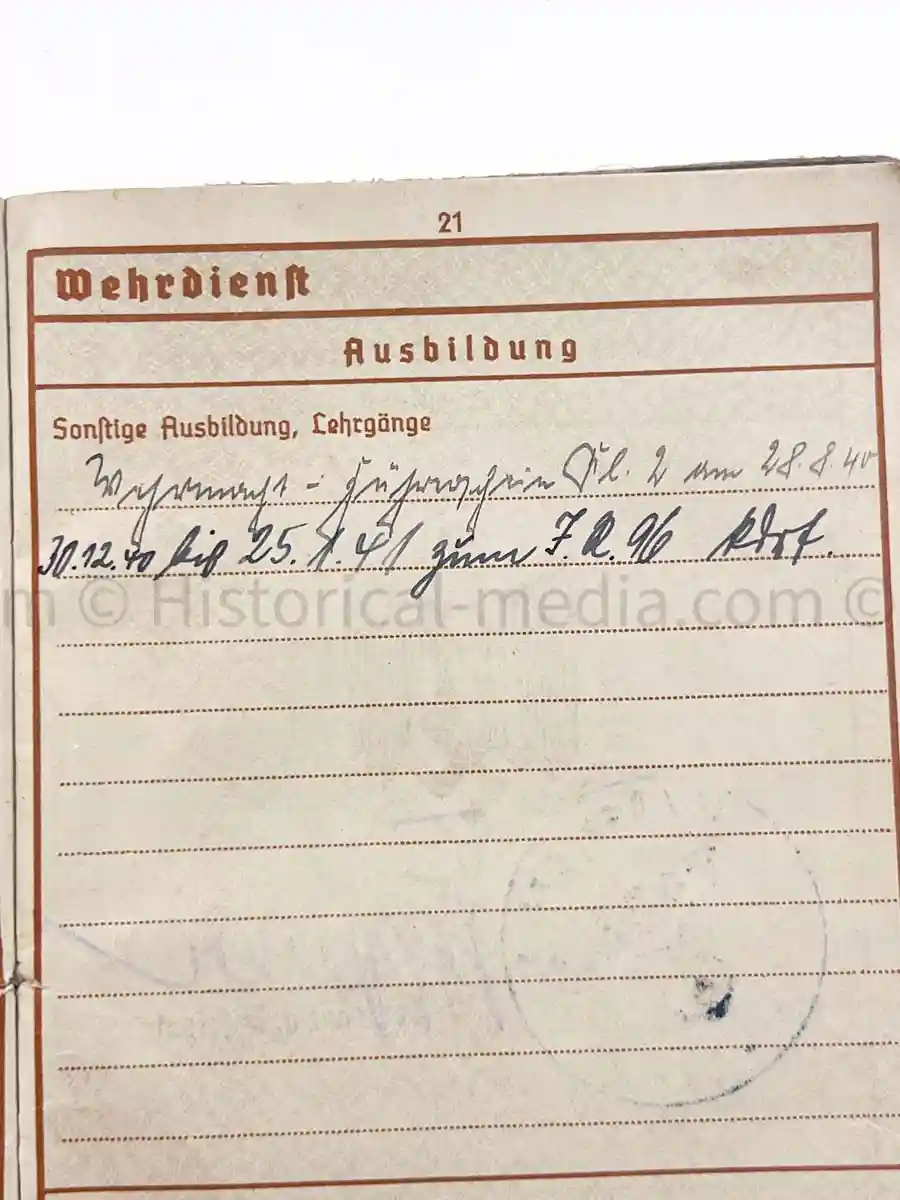 21
Wehrdienst
Ausbildung
Sonstige Ausbildung, Lehrgänge
Wehrmacht - Führerschein Kl. 2 am 28.8.40
30.12.40 bis 25.1.41 zum I.R. 96 kdrt.
m © Historical-media.com ©